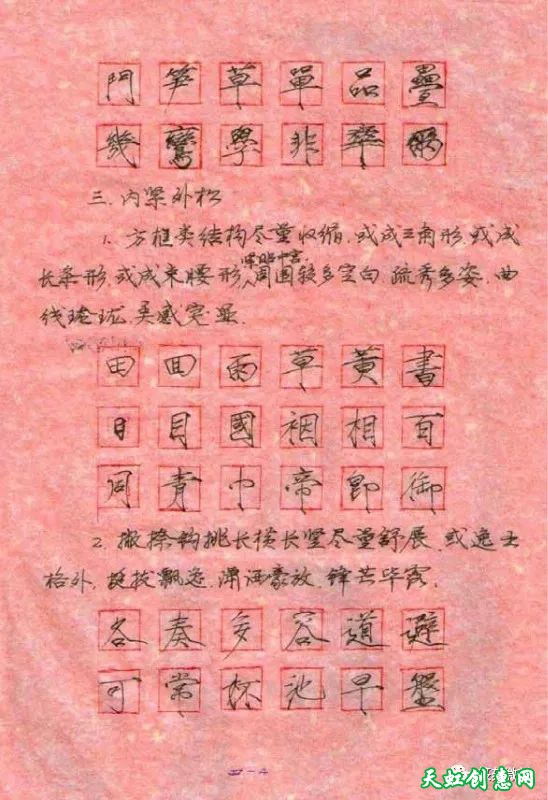 門 笋 草 單 品 疊
幾 鸞 學 非 率 爾
三.内紧外松
1. 方框类结构尽量收缩.或成三角形.或成
长条形.或成束腰形,周围较多空白.疏秀多姿.曲
线玲珑.美感完显.
田 回 雨 草 黄 書
日 目 國 裀 相 百
同 青 中 帝 即 御
2. 撇捺钩挑长横长竖尽量舒展.或逸出
格外.挺拔飘逸.潇洒豪放.锋芒毕露.
各 奏 多 容 道 避
可 常 杯 池 早 蟹
天虹创意网